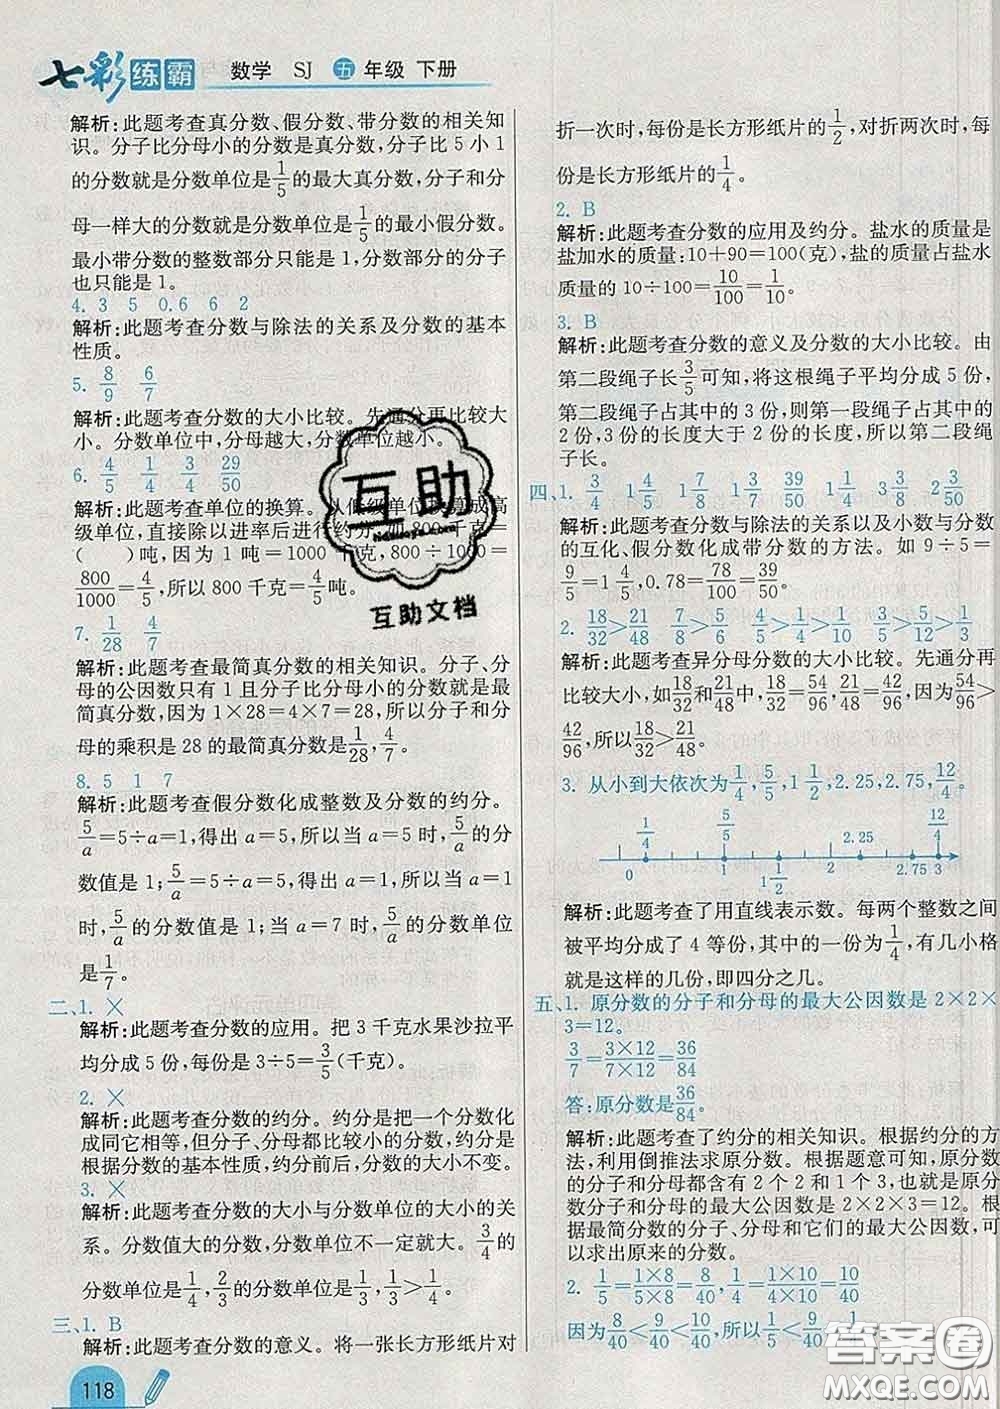 七彩练霸 数学 SJ 五年级 下册
解析:此题考查真分数、假分数、带分数的相关知
识。分子比分母小的分数是真分数,分子比 5 小 1
的分数就是分数单位是1/5的最大真分数,分子和分
母一样大的分数就是分数单位是1/5的最小假分数。
最小带分数的整数部分只能是1,分数部分的分子
也只能是 1。
4. 3 5 0.6 6 2
解析:此题考查分数与除法的关系及分数的基本
性质。
5. 8/9 6/7
解析:此题考查分数的大小比较。先通分再比较大
小。分数单位中,分母越大,分数单位越小。
6. 4/5 1/4 3/4 29/50
解析:此题考查单位的换算。从低级单位换算成高
级单位,直接除以进率后进行约分,如 800 千克=
( )吨,因为 1 吨=1000 千克,800÷1000=
800/1000=4/5,所以 800 千克=4/5吨。
7. 1/28 4/7
解析:此题考查最简真分数的相关知识。分子、分
母的公因数只有 1 且分子比分母小的分数就是最
简真分数,因为 1×28=4×7=28,所以分子和分
母的乘积是 28 的最简真分数是1/28,4/7。
8. 5 1 7
解析:此题考查假分数化成整数及分数的约分。
5/a=5÷a=1,得出 a=5,所以当 a=5 时,5/a的分
数值是 1;5/a=5÷a=5,得出 a=1,所以当 a=1
时,5/a的分数值是 1;当 a=7 时,5/a的分数单位
是1/7。
二、1. ×
解析:此题考查分数的应用。把 3 千克水果沙拉平
均分成 5 份,每份是 3÷5=3/5(千克)
2. ×
解析:此题考查分数的约分。约分是把一个分数化
成同它相等,但分子、分母都比较小的分数,约分是
根据分数的基本性质,约分前后,分数的大小不变。
3. ×
解析:此题考查分数的大小与分数单位的大小的关
系。分数值大的分数,分数单位不一定就大。3/4的
分数单位是1/4,2/3的分数单位是1/3,1/3>1/4。
三、1. B
解析:此题考查分数的意义。将一张长方形纸片对
118
折一次时,每份是长方形纸片的1/2,对折两次时,每
份是长方形纸片的1/4。
2. B
解析:此题考查分数的应用及约分。盐水的质量是
盐加水的质量:10+90=100(克),盐的质量占盐水
质量的 10÷100=10/100=1/10。
3. B
解析:此题考查分数的意义及分数的大小比较。由
第二段绳子长3/5可知,将这根绳子平均分成 5 份,
第二段占其中的 3 份,则第一段绳子占其中的
2 份,3 份的长度大于 2 份的长度,所以第二段绳
子长。
四、1. 3/4 1 4/5 1 7/8 1 1/2 3/50 2 3/50
解析:此题考查分数与除法的关系以及小数与分数
的互化、假分数化成带分数的方法。如 9÷5=
9/5=1 4/5,0.78=78/100=39/50。
2. 18/32>21/48 7/8>5/6 5/12>1/3
解析:此题考查异分母分数的大小比较。先通分再
比较大小,如18/32和21/48中,18/32=54/96,21/48=42/96,因为54/96>
42/96,所以18/32>21/48。
3. 从小到大依次为1/4,5/5,1 1/2,2.25,2.75,12/4。
1/4 5/5 2.25 12/4
0 1 1 1/2 2 2.75 3
解析:此题考查了用直线表示数。每两个整数之间
被平均分成了 4 等份,其中的一份为1/4,有几小格
就是这样的几份,即四分之几。
五、1. 原分数的分子和分母的最大公因数是 2×2×
3=12。
3/7=3×12/7×12=36/84
答:原分数是36/84。
解析:此题考查了约分的相关知识。根据约分的方
法,利用倒推法求原分数。根据题意可知,原分数
的分子和分母都含有 2 个 2 和 1 个 3,也就是原分
数分子和分母的最大公因数是 2×2×3=12。根
据最简分数的分子、分母和它们的最大公因数,可
以求出原来的分数。
2. 1/5=1×8/5×8=8/40,1/4=1×10/4×10=10/40
因为8/40<9/40<10/40,所以1/5<9/40<1/4
互助
互助文档
答案圈
MXQE.COM